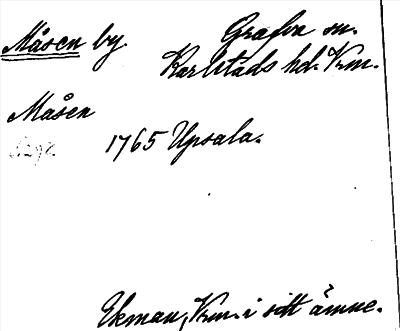 Måsen by. Grafva sn.
Karlstads hd. Vrm.
Måsen
1765 Upsala.
Ekman, Vrm. i sitt ämne.